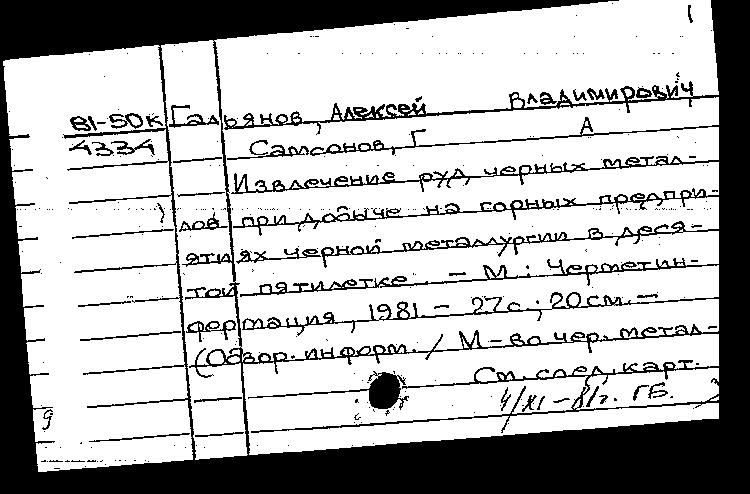 1
81-50к Гальянов, Алексей Владимирович,
4334 Самсонов, Г А
Извлечение руд черных метал-
лов при добыче на горных предпри-
ятиях черной металлургии в деся-
той пятилетке. - М: Черметин-
формация, 1981. - 27с.; 20см. -
(Обзор. информ. / М-во чер. метал-
См. след. карт.
4/XI-81г. ГБ.
9